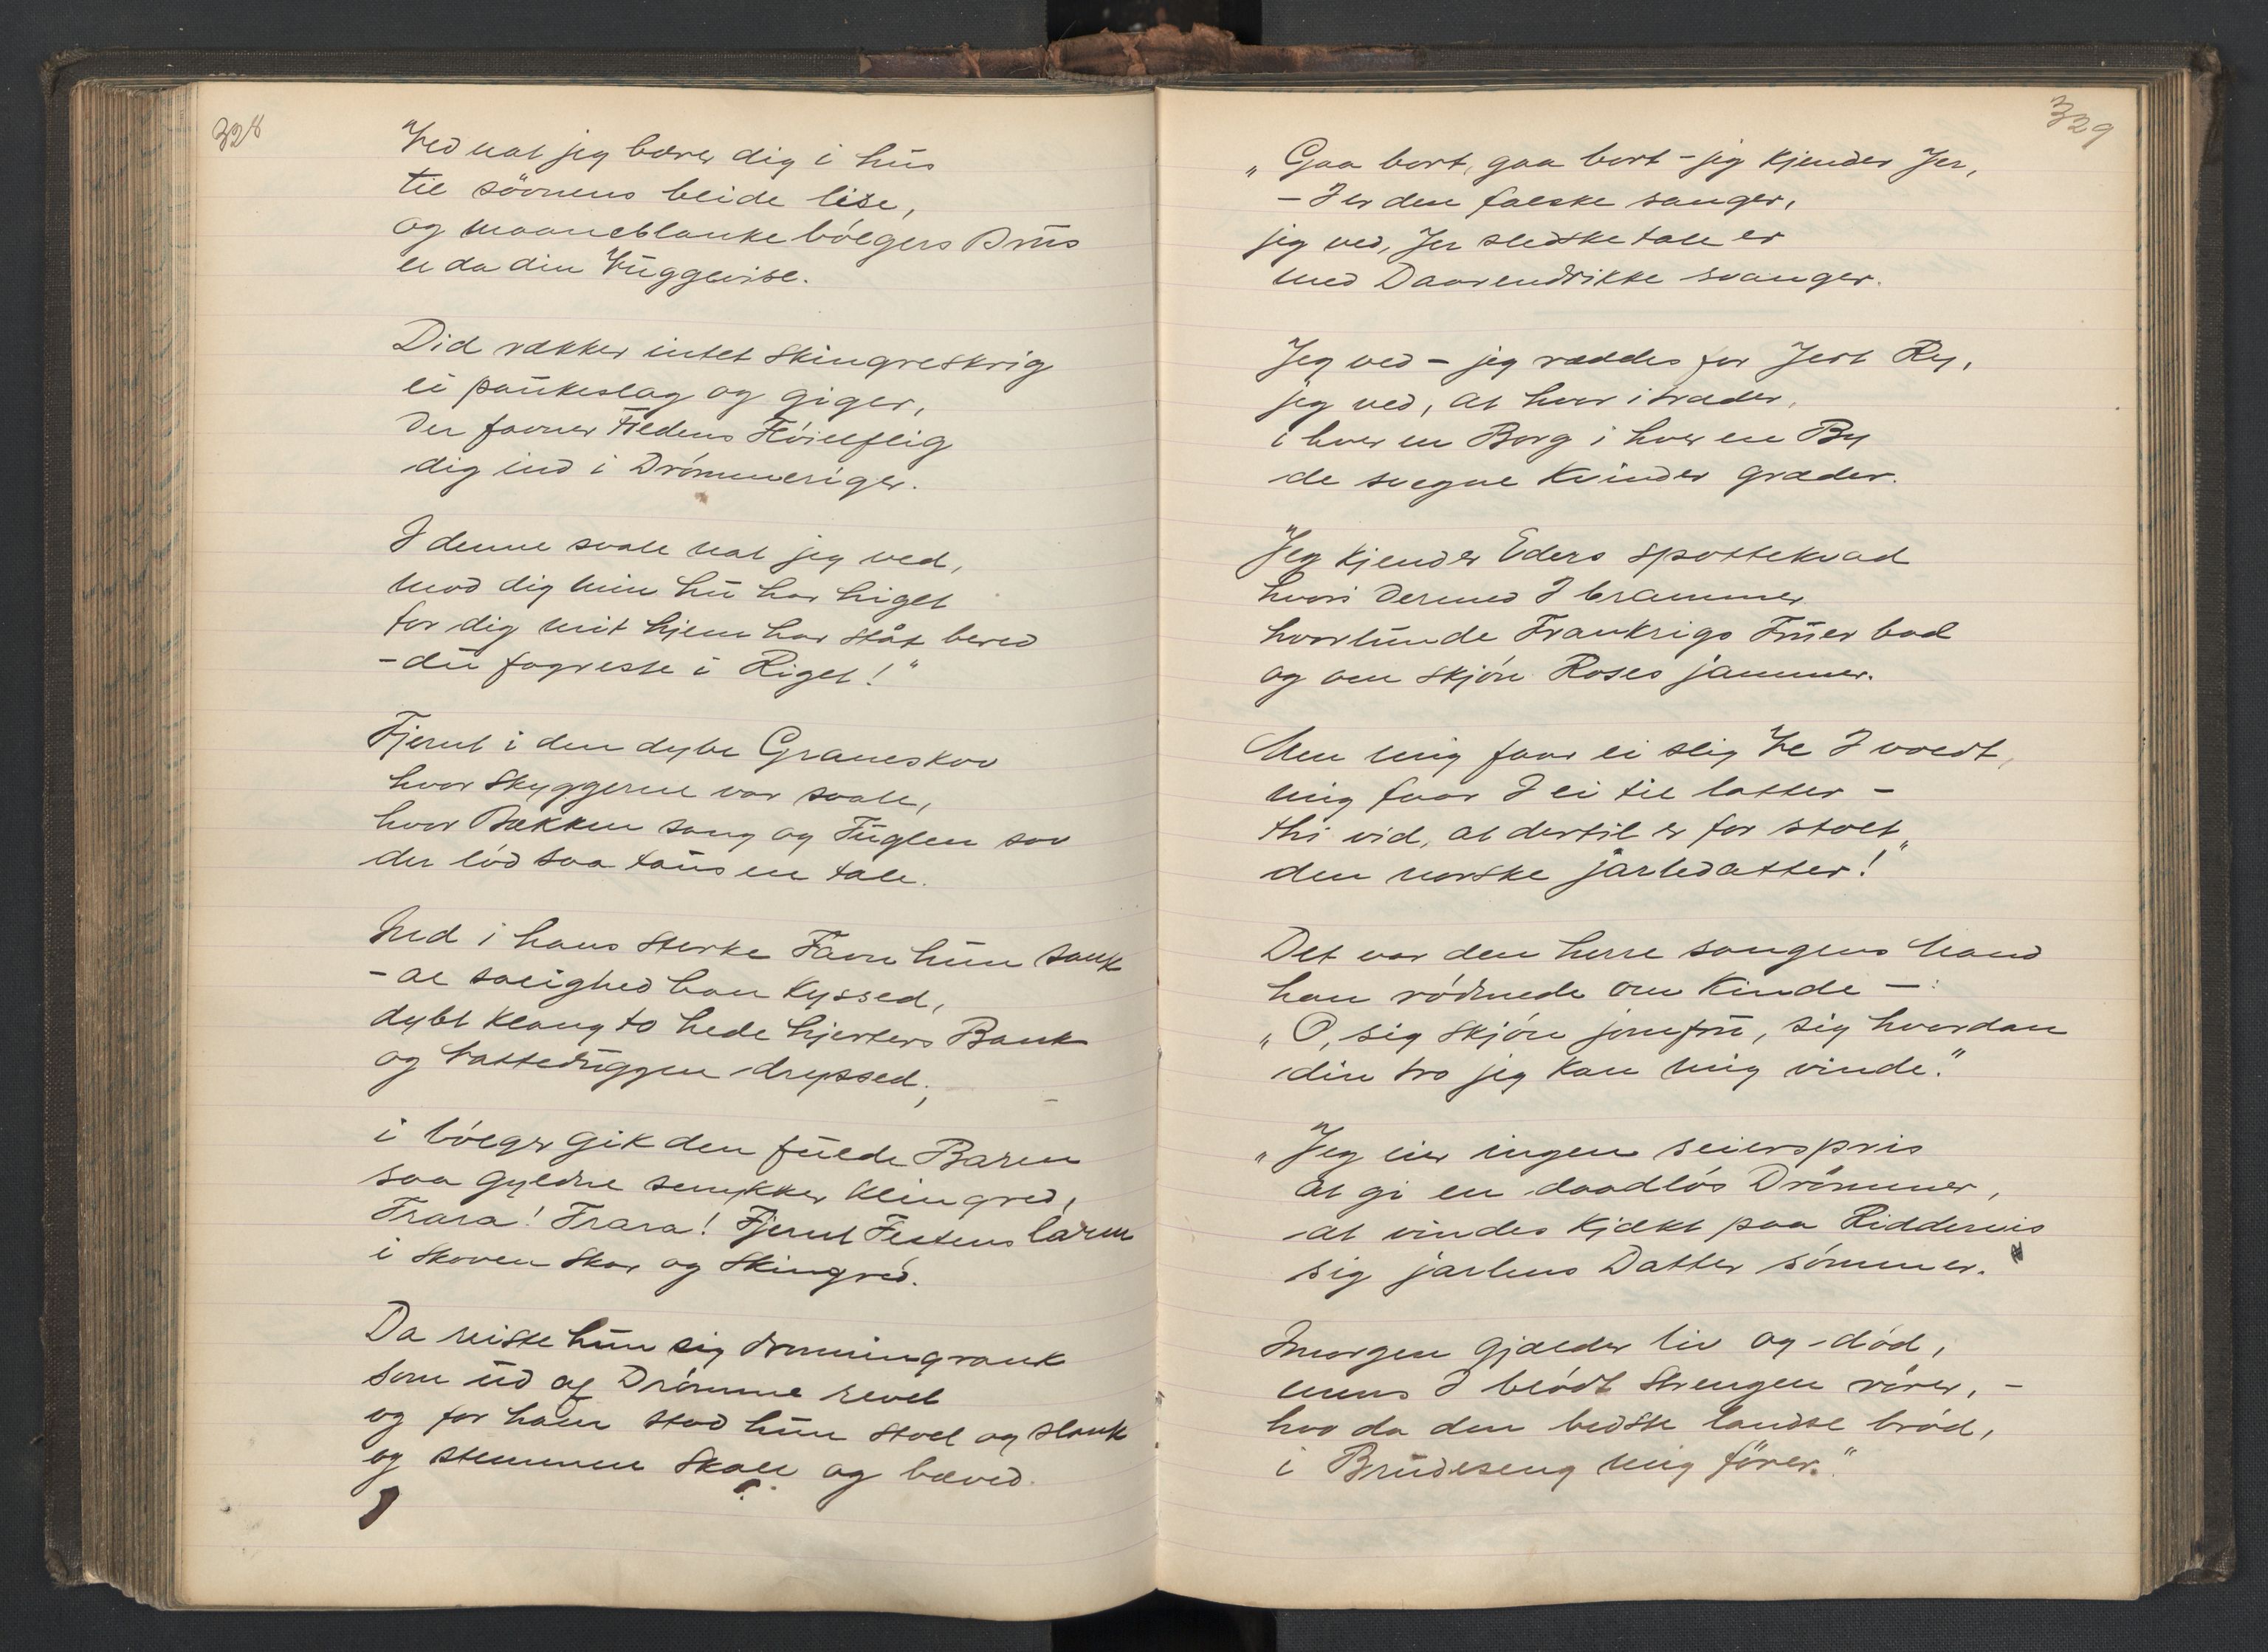 328
Ved nat jeg bærer dig i hus
til søvnens blide lise,
og maaneblanke bølgers Brus
er da din Vuggevise.
Did rækker intet skingreskrig
ei paukeslag og giger,
Der favner Fredens Fløielsflig
dig ind i Drømmeriger.
I denne svale nat jeg ved,
mod dig min hu har higet
for dig mit hjem har ståt bered
- du fagreste i Riget!"
Fjernt i den dybe Graneskov
hvor Skyggerne var svale,
hvor Bækken sang og Fuglen sov
der lød saa taus en tale.
Ned i hans sterke Favn hun sank
- al salighed han kyssed,
dybt klang to hede hjerters Bank
og natteduggen dryssed;
i bølger gik den fulde Barm
saa gyldne smykker klingred,
Trara! Trara! Fjernt Festens larm
i skoven skar og skingred.
Da reiste hun sig dronningrank
som ud af Drømme revet
og for ham stod hun stolt og slank
og stemmen skalv og bæved.
329
„Gaa bort, gaa bort - jeg kjender Jer,
- I er den falske sanger,
jeg ved, Jer sledske tale er
med Daarendrikke svanger.
Jeg ved - jeg ræddes for Jert Ry,
jeg ved, at hvor i træder,
i hver en Borg i hver en By
de svegne Kvinder græder.
Jeg kjender Eders spottekvad
hvori dermed I brammer
hvorlunde Frankrigs Fruer bad
og om skjøn Roses jammer.
Men mig faar ei slig Ve I voldt,
mig faar I ei til latter -
thi vid, at dertil er for stolt
den norske jarledatter!"
Det var den herre sangens Mand
han rødmede om Kinde -:
„O, sig skjøn jomfru, sig hvordan
din tro jeg kan mig vinde."
„Jeg eier ingen seierspris
at gi en daadløs Drømmer,
at vindes kjækt paa Riddervis
sig jarlens Datter sømmer.
Imorgen gjælder liv og død,
mens I blødt Strengen rører, -
hvo da den bedste landse brød,
i Brudeseng mig fører."